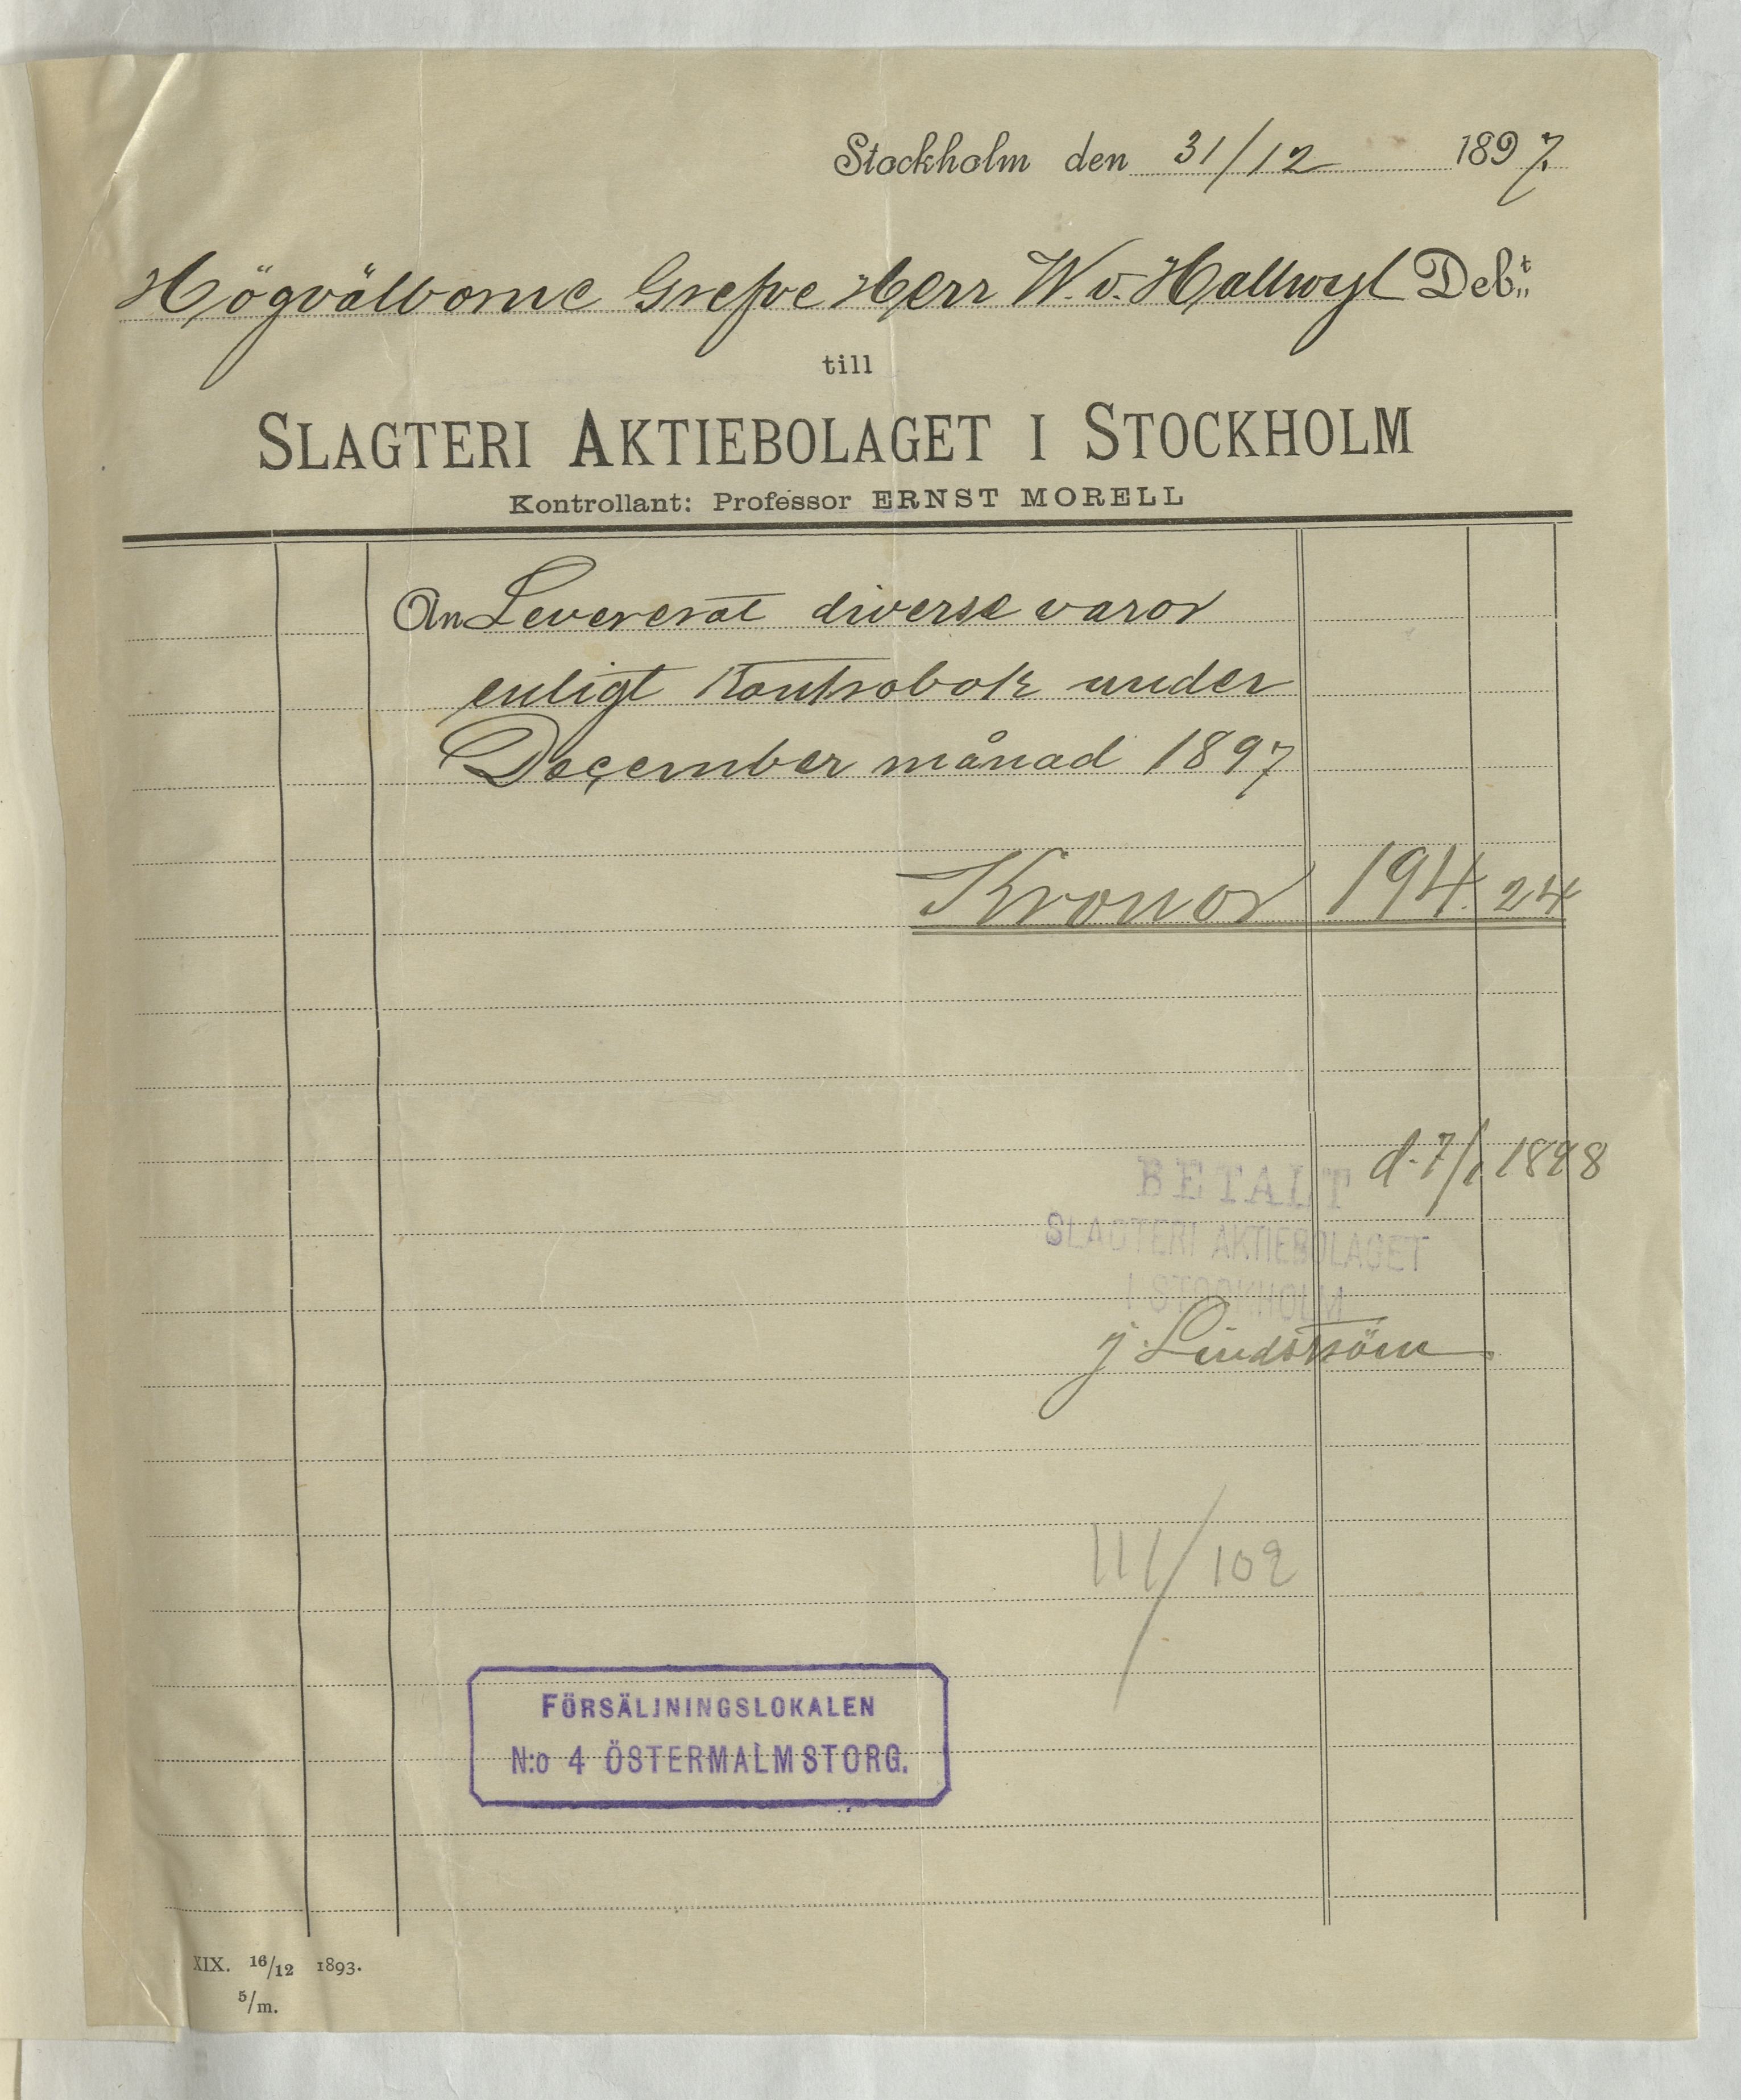 Stockholm den 31/12 1897.
Högvälborne Grefve Herr W. v. Hallwyl Deb:t
till
SLAGTERI AKTIEBOLAGET I STOCKHOLM
Kontrollant: Professor ERNST MORELL
An Levererat diverse varor
enligt Kontrabok under
December månad 1897
Kronor 194. 24
d. 7/1 1898
BETALT
SLAGTERI AKTIEBOLAGET
I STOCKHOLM
J Lindström
111/102
FÖRSÄLJNINGSLOKALEN
N:o 4 ÖSTERMALMSTORG.
XIX. 16/12 1893.
5/m.